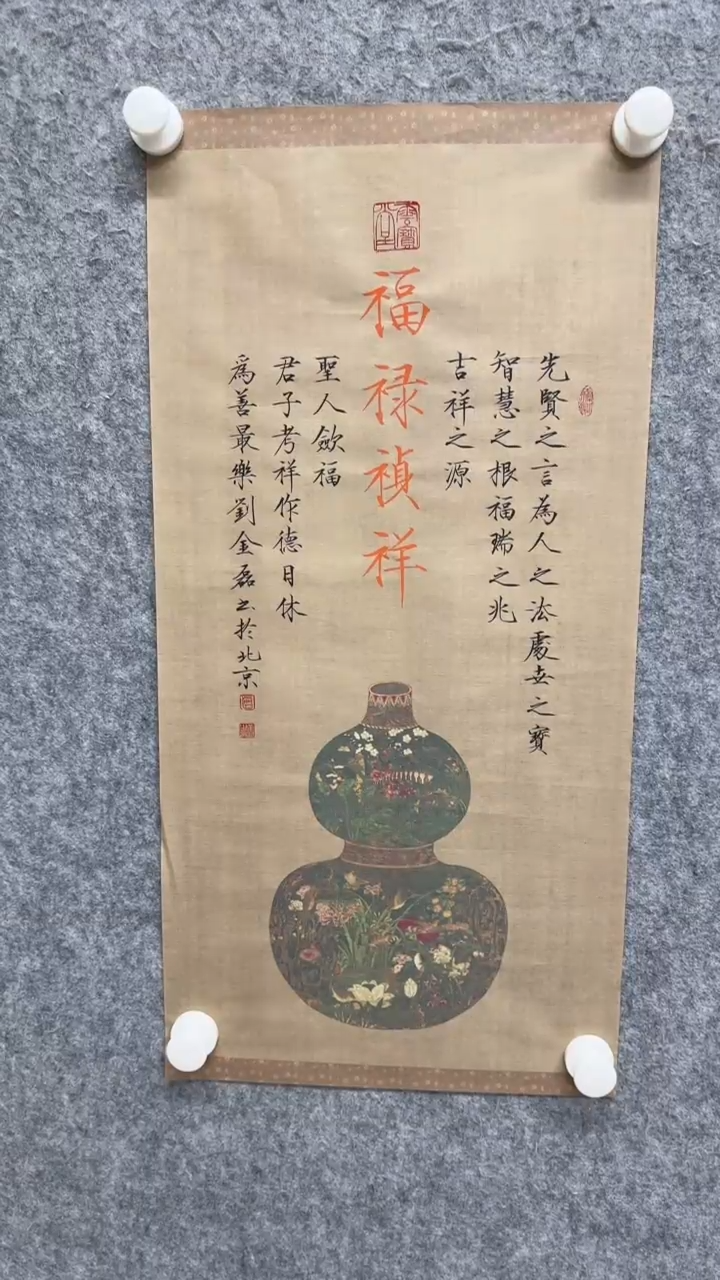 先賢之言為人之法處世之寶
智慧之根福瑞之兆
吉祥之源
福禄禎祥
聖人歛福
君子考祥作德日休
爲善最樂劉金磊书於北京